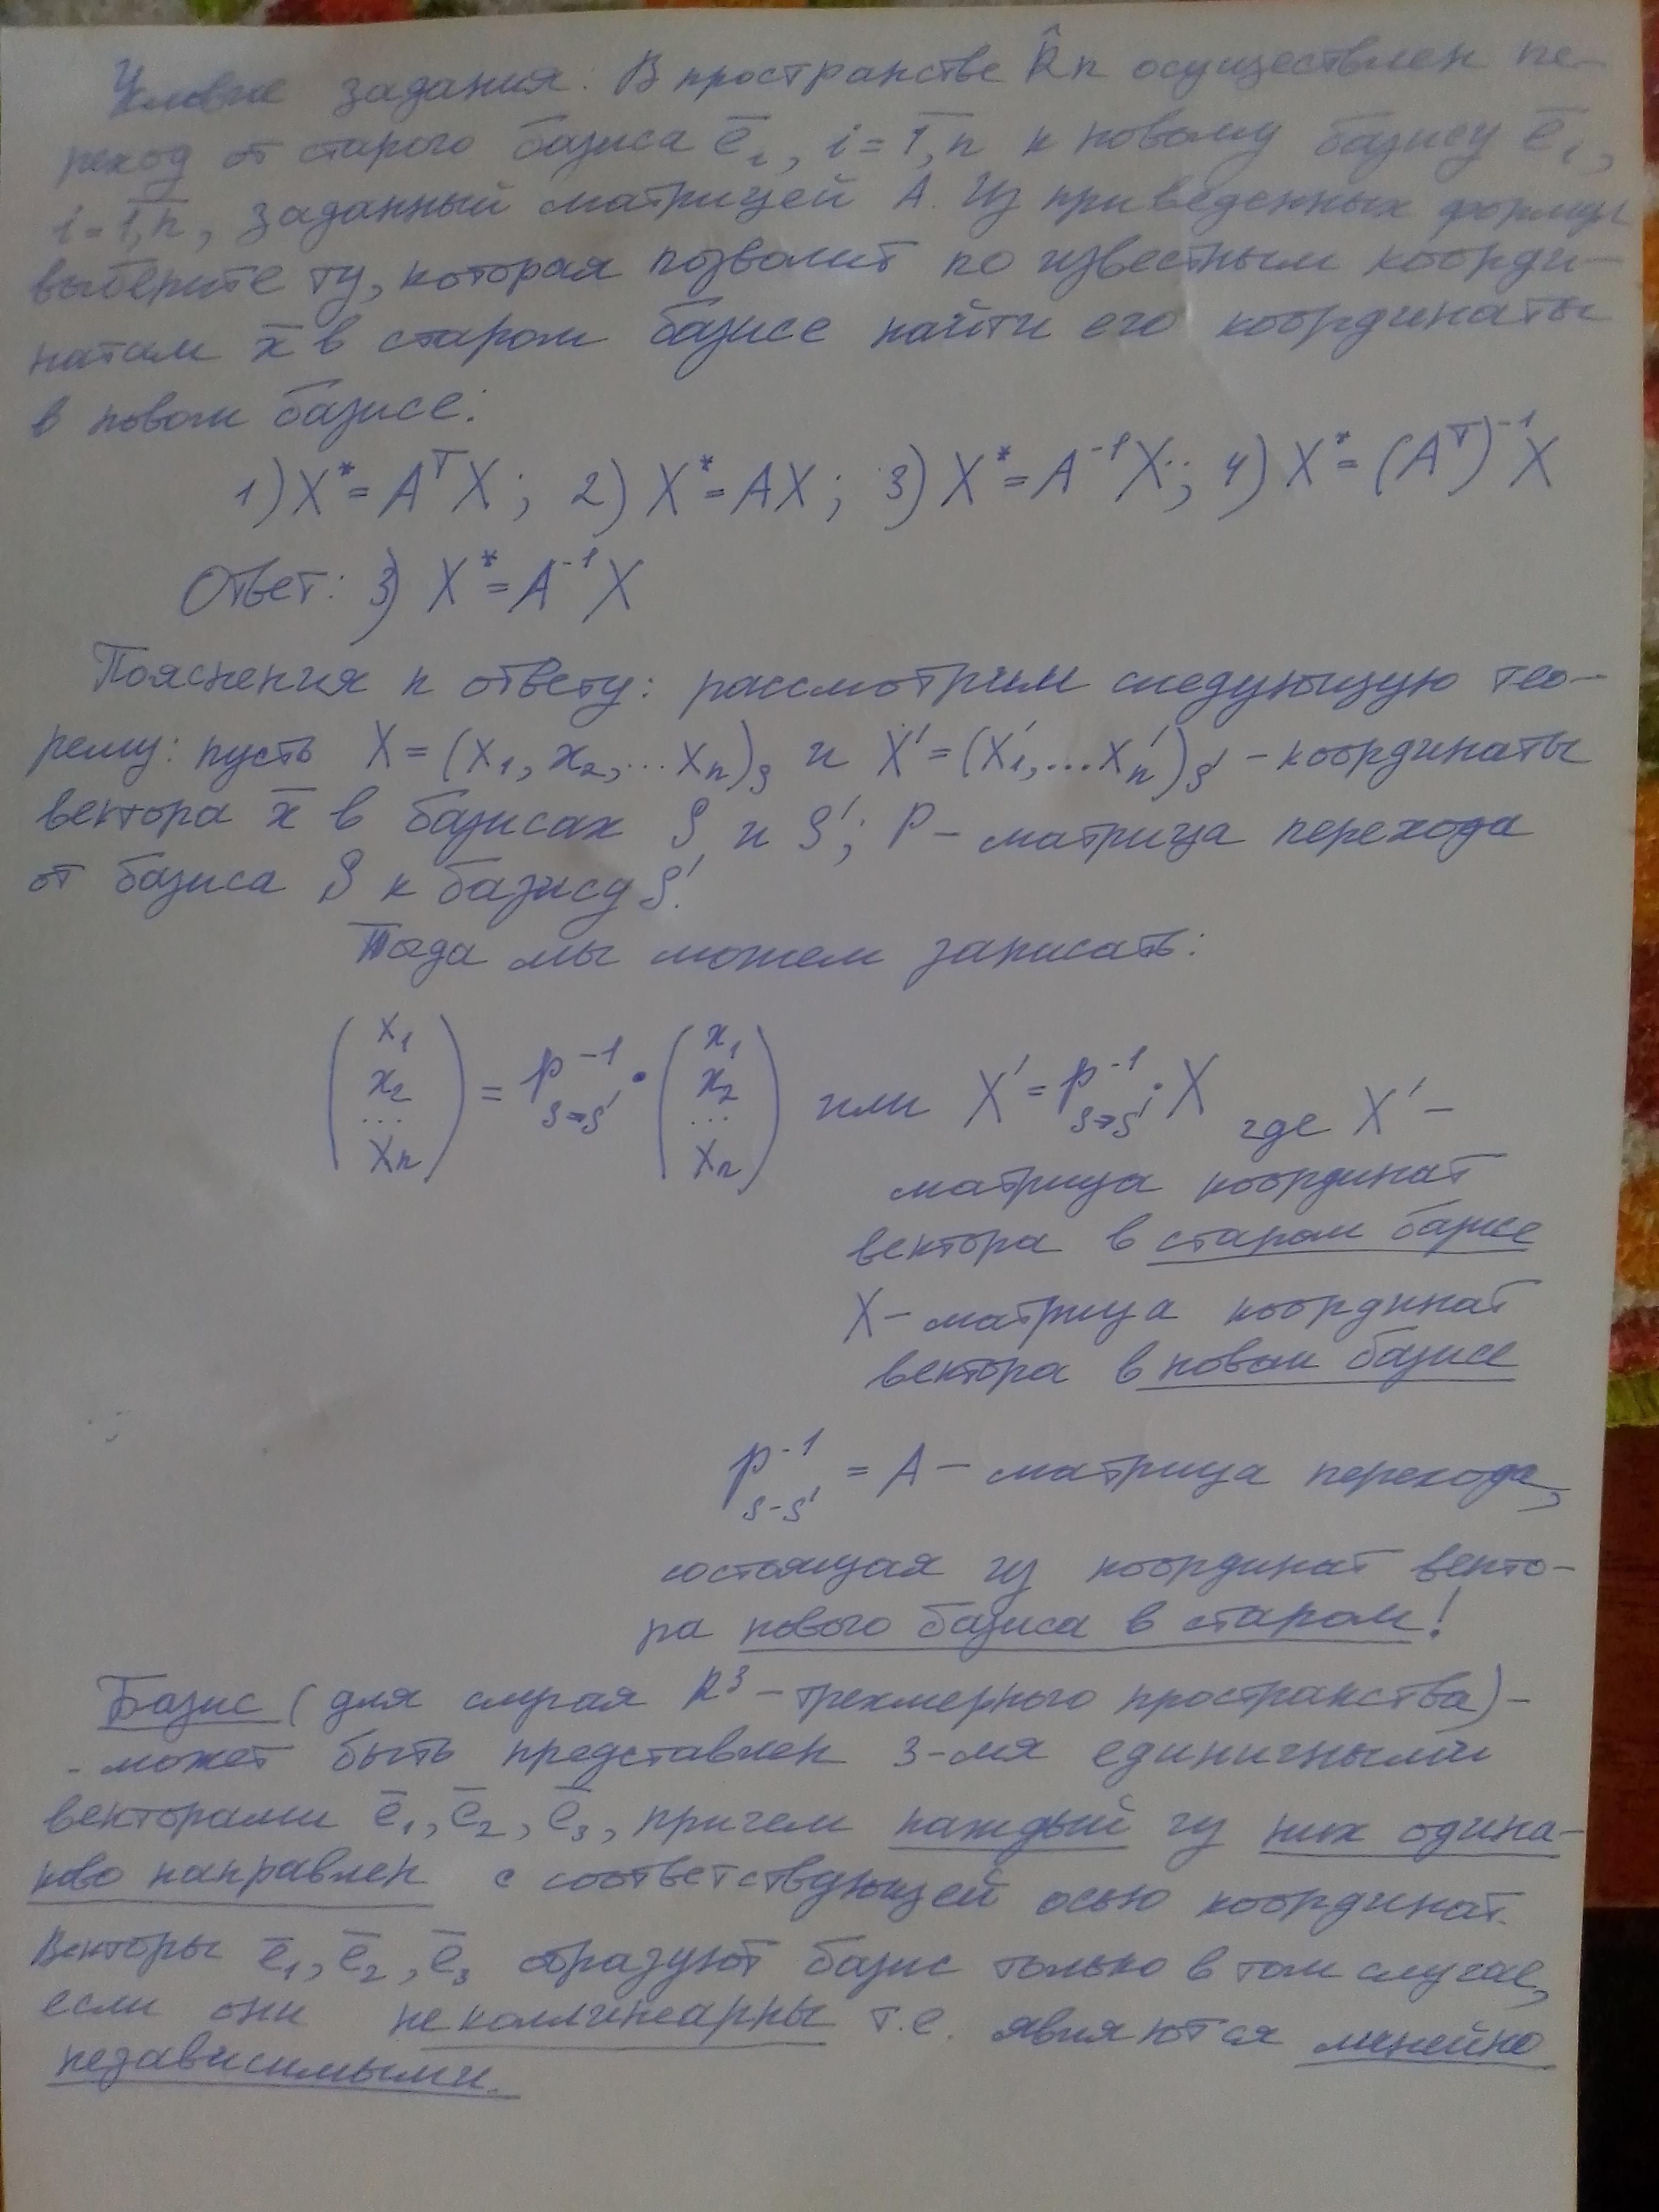 Условие задания. В пространстве R̂n осуществлен пе-
реход от старого базиса ē i, i = 1,n к новому базису ē i,
i = 1,n, заданный матрицей A. Из приведенных формул
выберите ту, которая позволит по известным коорди-
натам x̄ в старом базисе найти его координаты
в новом базисе:
1) X* = AᵀX; 2) X* = AX; 3) X* = A⁻¹X; 4) X* = (Aᵀ)⁻¹X
Ответ: 3) X* = A⁻¹X
Пояснения к ответу: рассмотрим следующую тео-
рему: пусть X = (x₁, x₂, ... xₙ)S и X' = (x'₁, ... x'ₙ)S' - координаты
вектора x̄ в базисах S и S'; P - матрица перехода
от базиса S к базису S'.
Тогда мы можем записать:
(x₁ x₂ ... xₙ) = P⁻¹ S→S' · (x₁ x₂ ... xₙ) или X' = P⁻¹ S→S' · X где X' -
матрица координат
вектора в старом базисе
X - матрица координат
вектора в новом базисе
P⁻¹ S-S' = A - матрица перехода,
состоящая из координат векто-
ра нового базиса в старом!
Базис (для случая R³ - трехмерного пространства) -
- может быть представлен 3-мя единичными
векторами ē₁, ē₂, ē₃, причем каждый из них одина-
ково направлен с соответствующей осью координат.
Векторы ē₁, ē₂, ē₃ образуют базис только в том случае,
если они неколлинеарны т.е. являются линейно
независимыми.